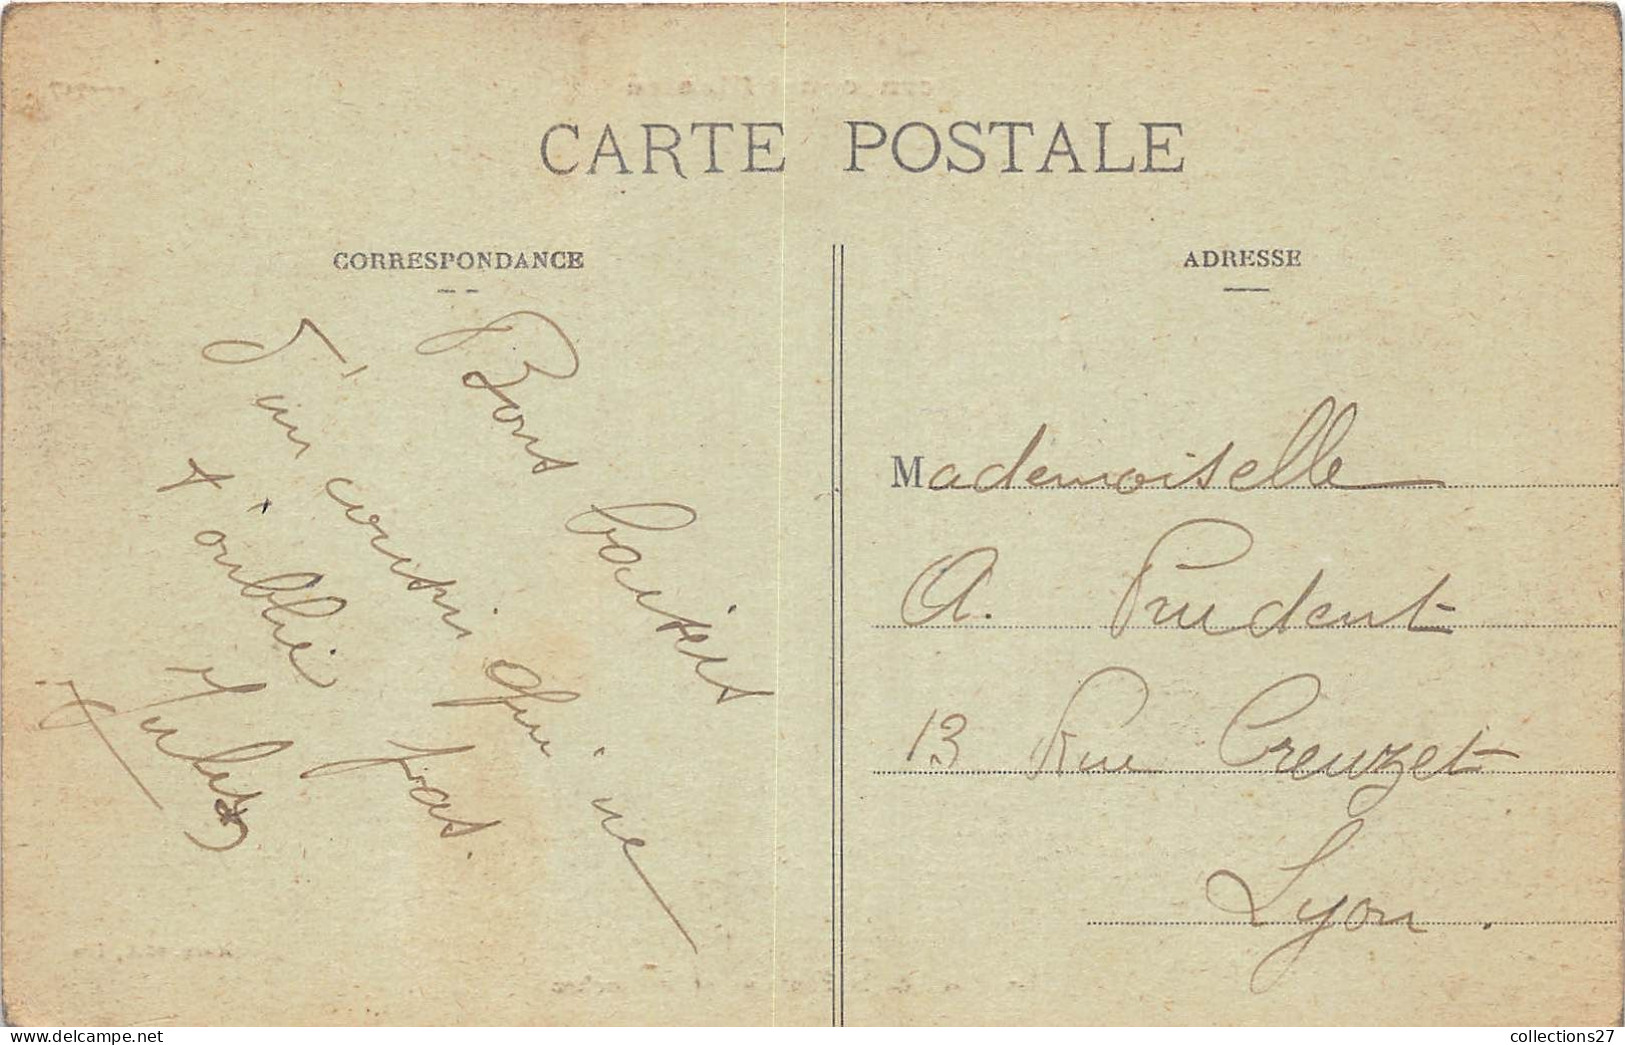 CARTE POSTALE
CORRESPONDANCE
ADRESSE
Bons baisers
d'un cousin qui ne
t'oublie pas.
Mademoiselle
A. Prudent
13 Rue Creuzet
Lyon.
collections27